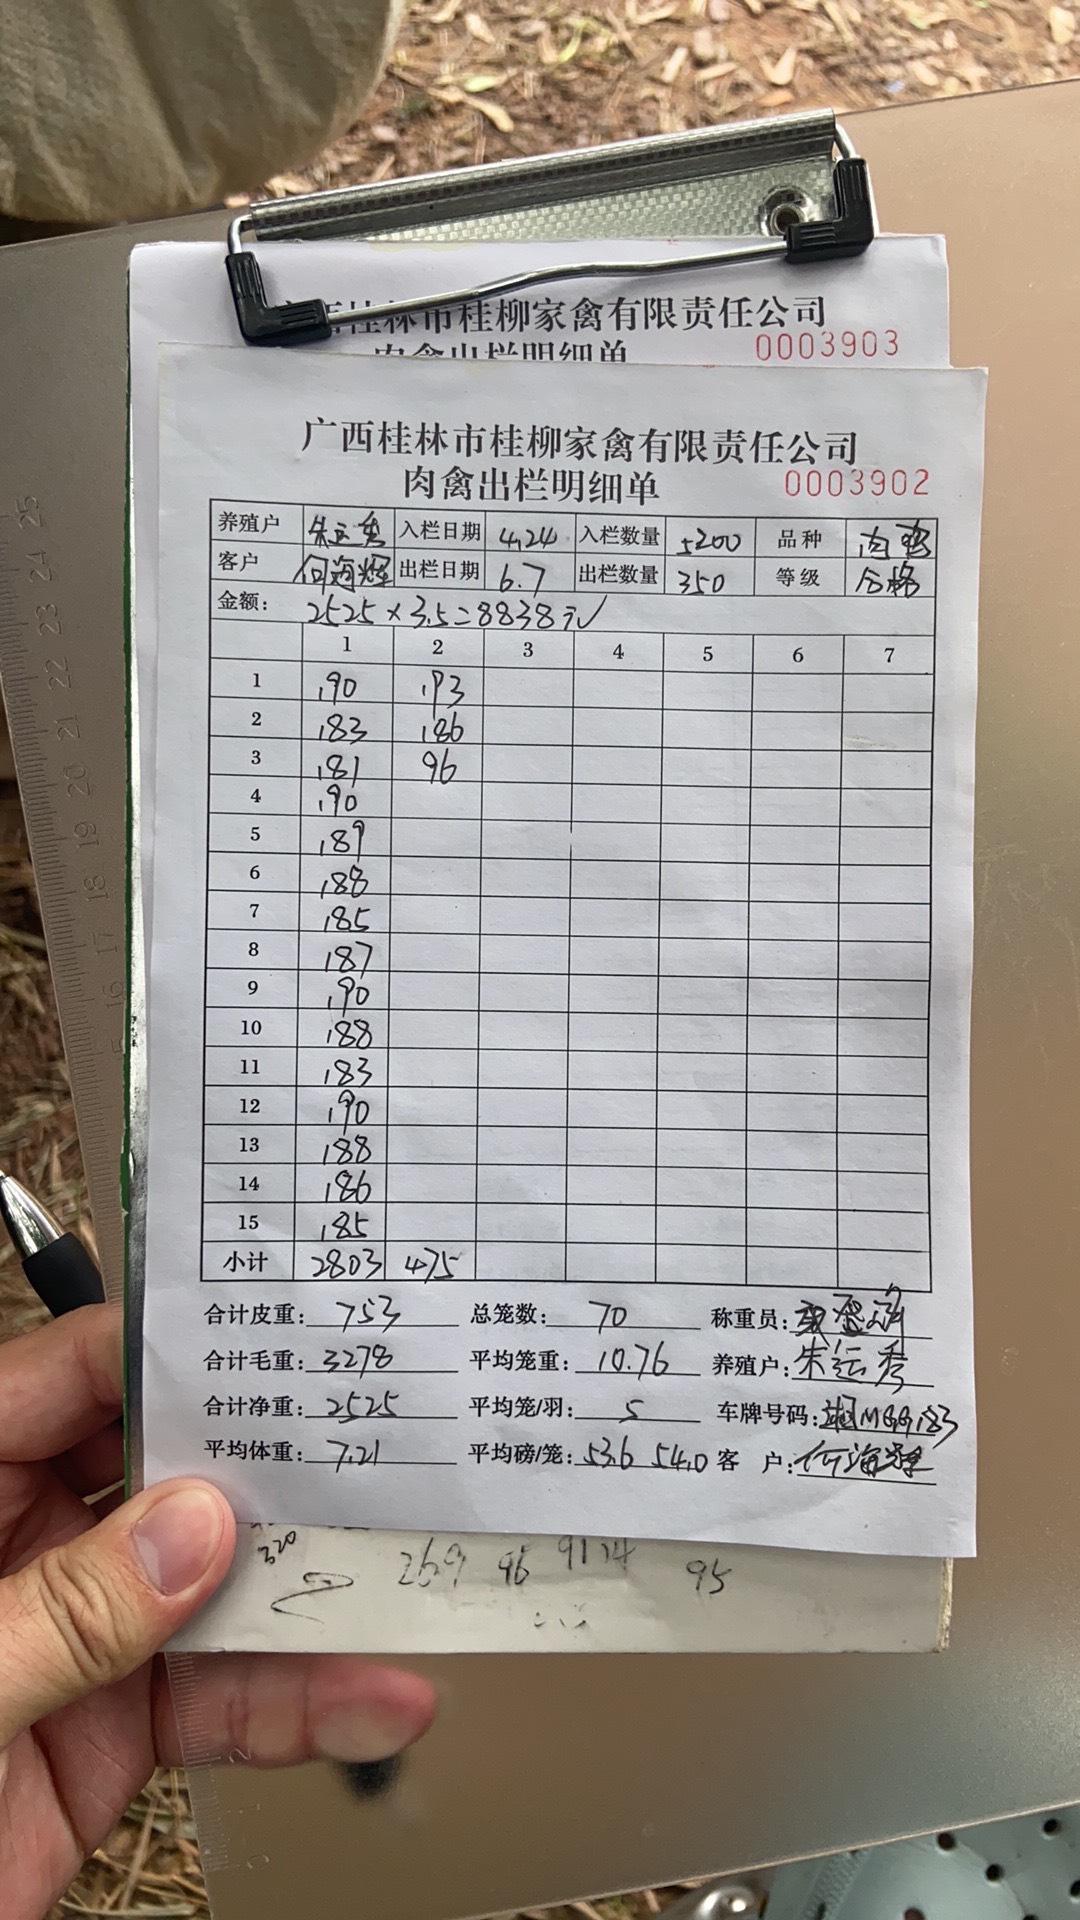 桂林市桂柳家禽有限责任公司
肉禽出栏明细单 0003903
广西桂林市桂柳家禽有限责任公司
肉禽出栏明细单 0003902
养殖户 朱运秀 入栏日期 4.24 入栏数量 5200 品种 肉鸭
客户 何海辉 出栏日期 6.7 出栏数量 350 等级 合格
金额: 2525×3.5=8838元
1 2 3 4 5 6 7
1 190 193
2 183 186
3 181 96
4 190
5 189
6 188
7 185
8 187
9 190
10 188
11 183
12 190
13 188
14 186
15 185
小计 2803 475
合计皮重: 753 总笼数: 70 称重员:
合计毛重: 3278 平均笼重: 10.76 养殖户: 朱运秀
合计净重: 2525 平均笼/羽: 5 车牌号码: 湘M
平均体重: 7.21 平均磅/笼: 53.6 54.0 客 户: 何海辉
320
269 96 9114 95
25
24
23
22
21
20
19
18
17
16